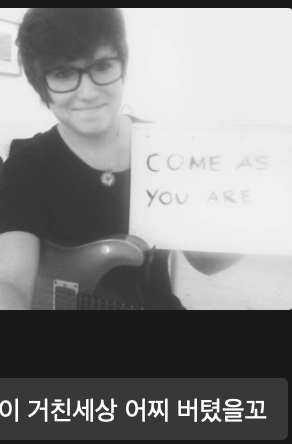 COME AS
YOU ARE
이 거친세상 어찌 버텼을꼬